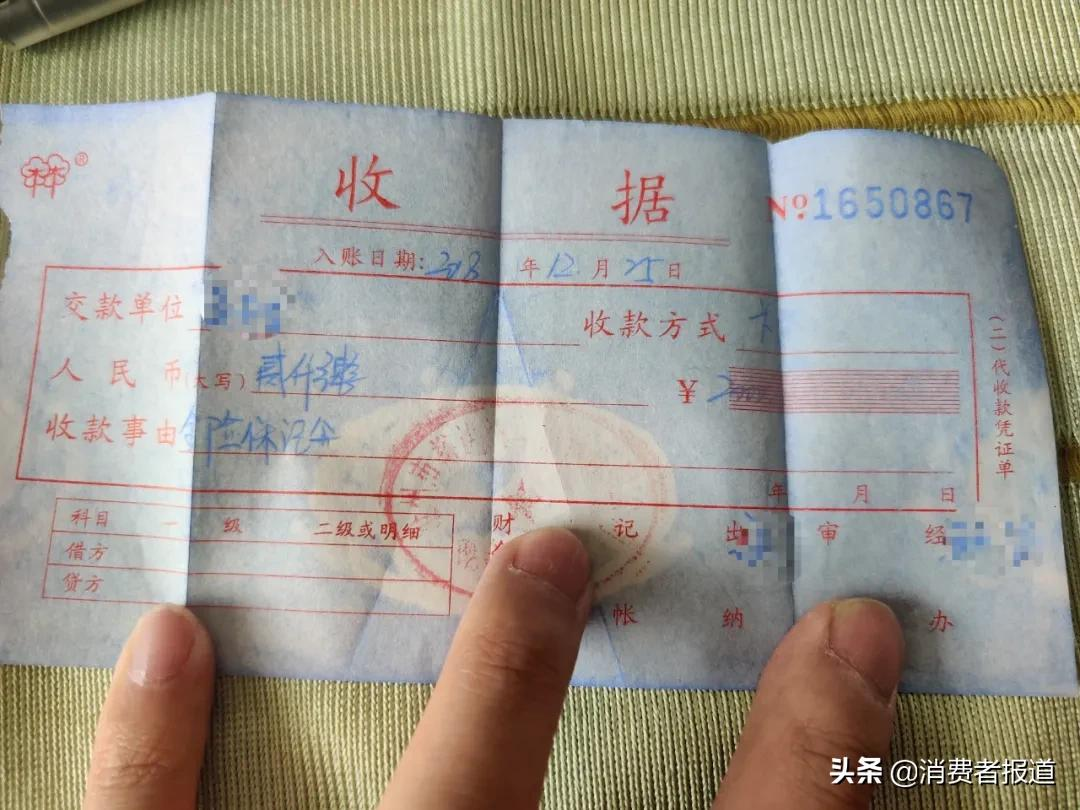 收 据 №1650867
入账日期:2018年12月25日
交款单位 收款方式 卡
人民币(大写) 贰仟
¥ 2000
收款事由 全险保证金
年 月 日
(二)代收款凭证单
科目 一级 二级或明细
借方
贷方
财 记 出 审 经
帐 纳 办
头条 @消费者报道